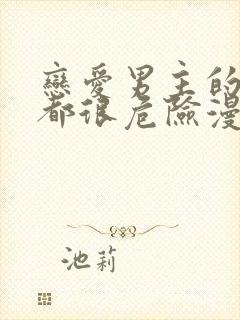 戀愛男主的
都很危險漫
池莉